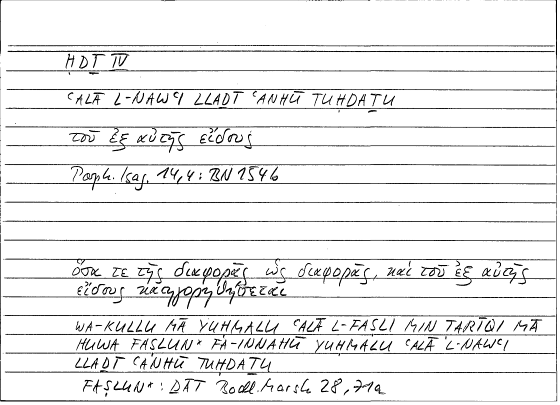 ḤDṮ IV
ʿALĀ L-NAWʿI LLAḎĪ ʿANHŪ TUḤDAṮU
τοῦ ἐξ αὐτῆς εἴδους
Porph. Isag. 14,4 : BN 154b
ὅσα τε τῆς διαφορᾶς ὡς διαφορᾶς, καὶ τοῦ ἐξ αὐτῆς
εἴδους κατηγορηθήσεται
WA-KULLU MĀ YUḤMALU ʿALĀ L-FAṢLI MIN ṬARĪQI MĀ
HUWA FAṢLUN* FA-INNAHŪ YUḤMALU ʿALĀ L-NAWʿI
LLAḎĪ ʿANHŪ TUḤDAṮU
FAṢLUN* : ḎĀT Bodl. Marsh 28, 71a